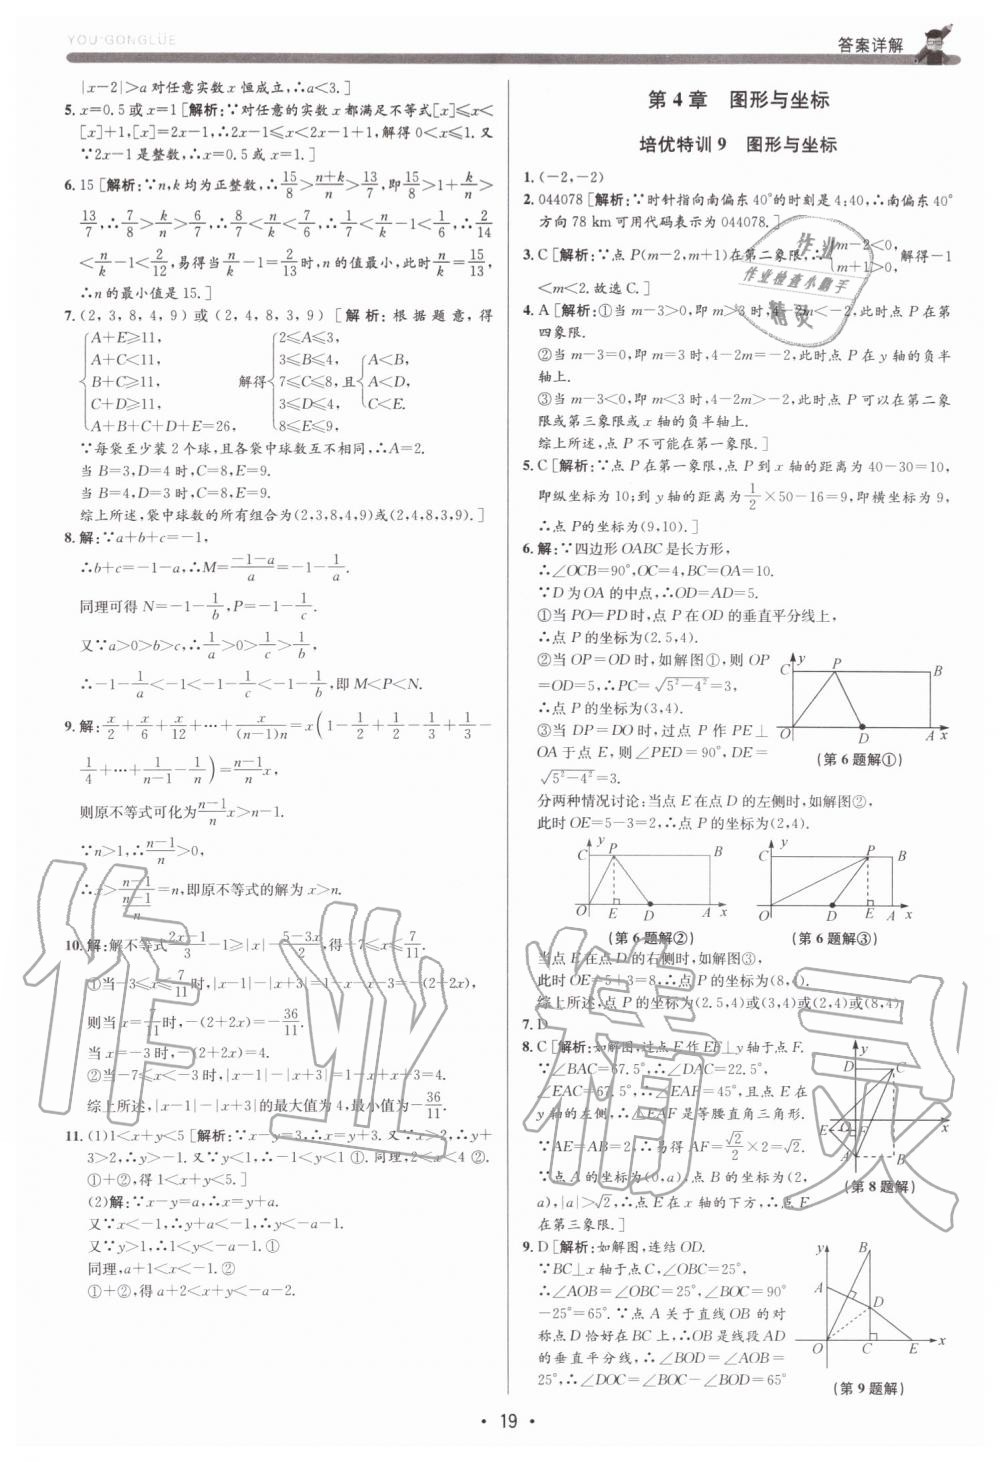 YOU GONGLÜE
答案详解
|x-2|>a 对任意实数 x 恒成立,∴a<3.]
5. x=0.5 或 x=1 [解析:∵对任意的实数 x 都满足不等式[x]≤x<
[x]+1,[x]=2x-1,∴2x-1≤x<2x-1+1,解得 0<x≤1. 又
∵2x-1 是整数,∴x=0.5 或 x=1.]
6. 15 [解析:∵n,k 均为正整数,∴15/8>(n+k)/n>13/7,即15/8>1+k/n>
13/7,∴7/8>k/n>6/7,∴8/7<n/k<7/6,∴1/7<n/k-1<1/6,∴2/14
<n/k-1<2/12,易得当n/k-1=2/13时,n 的值最小,此时n/k=15/13,
∴n 的最小值是 15.]
7. (2,3,8,4,9)或(2,4,8,3,9) [解析:根据题意,得
{A+E≥11, A+C<11, B+C≥11, C+D≥11, A+B+C+D+E=26, 解得{2≤A≤3, 3≤B≤4, 7≤C≤8, 3≤D≤4, 8≤E≤9, 且{A<B, A<D, C<E.
∵每袋至少装 2 个球,且各袋中球数互不相同,∴A=2.
当 B=3,D=4 时,C=8,E=9.
当 B=4,D=3 时,C=8,E=9.
综上所述,袋中球数的所有组合为(2,3,8,4,9)或(2,4,8,3,9).]
8. 解:∵a+b+c=-1,
∴b+c=-1-a,∴M=(-1-a)/a=-1-1/a.
同理可得 N=-1-1/b,P=-1-1/c.
又∵a>0>b>c,∴1/a>0>1/c>1/b,
∴-1-1/a<-1<-1-1/c<-1-1/b,即 M<P<N.
9. 解:x/2+x/6+x/12+…+x/((n-1)n)=x(1-1/2+1/2-1/3+1/3-
1/4+…+1/(n-1)-1/n)=(n-1)/n x,
则原不等式可化为(n-1)/n x>n-1.
∵n>1,∴(n-1)/n>0,
∴x>(n-1)/((n-1)/n)=n,即原不等式的解为 x>n.
10. 解:解不等式(2x-1)/3-1≥|x|-(5-3x)/2,得-7≤x≤7/11.
①当-3≤x≤7/11时,|x-1|-|x+3|=1-x-x-3=-(2+2x),
则当 x=7/11时,-(2+2x)=-36/11.
当 x=-3 时,-(2+2x)=4.
②当-7≤x<-3 时,|x-1|-|x+3|=1-x+x+3=4.
综上所述,|x-1|-|x+3|的最大值为 4,最小值为-36/11.
11. (1)1<x+y<5 [解析:∵x-y=3,∴x=y+3. 又∵x>2,∴y+
3>2,∴y>-1. 又∵y<1,∴-1<y<1 ①. 同理,2<x<4 ②.
①+②,得 1<x+y<5.]
(2)解:∵x-y=a,∴x=y+a.
又∵x<-1,∴y+a<-1,∴y<-a-1.
又∵y>1,∴1<y<-a-1. ①
同理,a+1<x<-1. ②
①+②,得 a+2<x+y<-a-2.
第 4 章 图形与坐标
培优特训 9 图形与坐标
1. (-2,-2)
2. 044078 [解析:∵时针指向南偏东 40°的时刻是 4:40,∴南偏东 40°
方向 78 km 可用代码表示为 044078.]
3. C [解析:∵点 P(m-2,m+1)在第二象限,∴{m-2<0, m+1>0, 解得-1
<m<2. 故选 C.]
4. A [解析:①当 m-3>0,即 m>3 时,4-2m<-2,此时点 P 在第
四象限.
②当 m-3=0,即 m=3 时,4-2m=-2,此时点 P 在 y 轴的负半
轴上.
③当 m-3<0,即 m<3 时,4-2m>-2,此时点 P 可以在第二象
限或第三象限或 x 轴的负半轴上.
综上所述,点 P 不可能在第一象限.]
5. C [解析:∵点 P 在第一象限,点 P 到 x 轴的距离为 40-30=10,
即纵坐标为 10;到 y 轴的距离为1/2×50-16=9,即横坐标为 9,
∴点 P 的坐标为(9,10).]
6. 解:∵四边形 OABC 是长方形,
∴∠OCB=90°,OC=4,BC=OA=10.
∵D 为 OA 的中点,∴OD=AD=5.
①当 PO=PD 时,点 P 在 OD 的垂直平分线上,
∴点 P 的坐标为(2.5,4).
②当 OP=OD 时,如解图①,则 OP
=OD=5,∴PC=√(5²-4²)=3,
∴点 P 的坐标为(3,4).
③当 DP=DO 时,过点 P 作 PE⊥
OA 于点 E,则∠PED=90°,DE=
√(5²-4²)=3.
C y P B O D A x
(第 6 题解①)
分两种情况讨论:当点 E 在点 D 的左侧时,如解图②,
此时 OE=5-3=2,∴点 P 的坐标为(2,4).
C y P B O E D A x
(第 6 题解②)
C y P B O D E A x
(第 6 题解③)
当点 E 在点 D 的右侧时,如解图③,
此时 OE=5+3=8,∴点 P 的坐标为(8,4).
综上所述,点 P 的坐标为(2.5,4)或(3,4)或(2,4)或(8,4).
7. D
8. C [解析:如解图,过点 E 作 EF⊥y 轴于点 F.
∵∠BAC=67.5°,∴∠DAC=22.5°,
∠EAC=67.5°,∴∠EAF=45°,且点 E 在
y 轴的左侧,∴△EAF 是等腰直角三角形.
∵AE=AB=2,∴易得 AF=√2/2×2=√2.
∵点 A 的坐标为(0,a),点 B 的坐标为(2,
a),|a|>√2,∴点 E 在 x 轴的下方,∴点 E
在第三象限.]
y D C E F x A B
(第 8 题解)
9. D [解析:如解图,连结 OD.
∵BC⊥x 轴于点 C,∠OBC=25°,
∴∠AOB=∠OBC=25°,∠BOC=90°
-25°=65°. ∵点 A 关于直线 OB 的对
称点 D 恰好在 BC 上,∴OB 是线段 AD
的垂直平分线,∴∠BOD=∠AOB=
25°,∴∠DOC=∠BOC-∠BOD=65°
y B A D O C E x
(第 9 题解)
作业
作业检查小帮手
精灵
作业精灵
· 19 ·